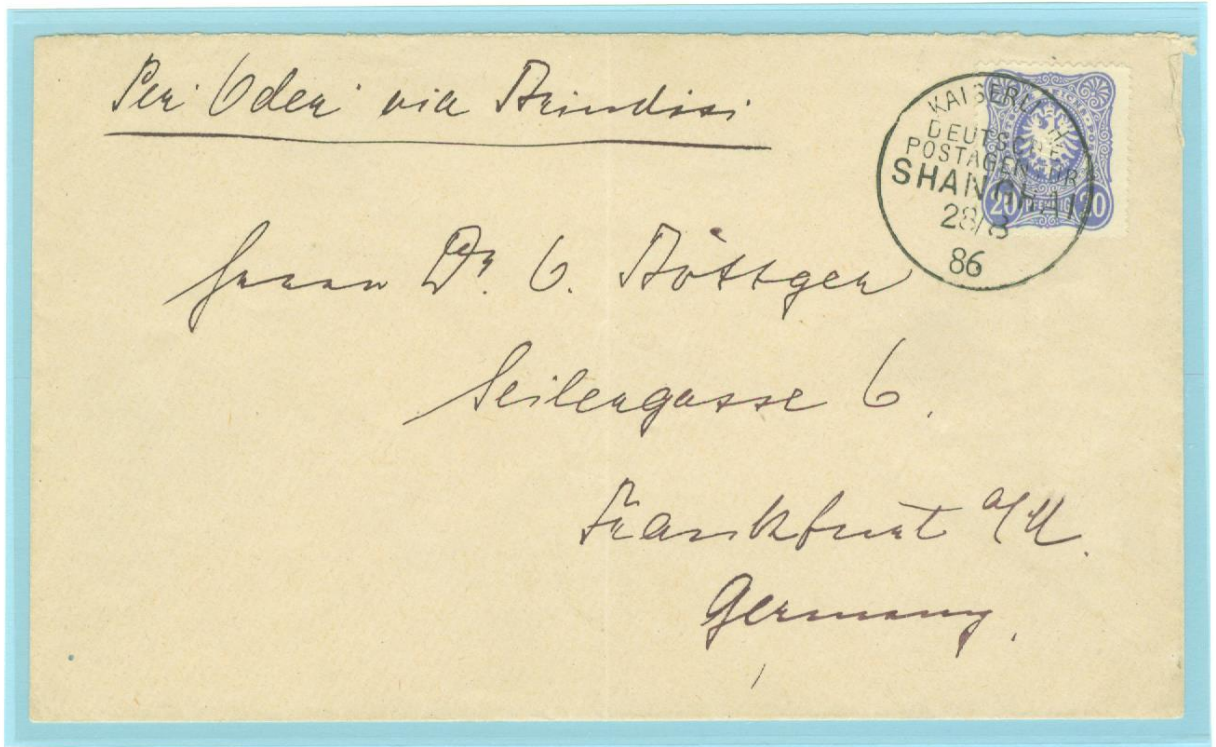 Per "Oder" via Brindisi
KAISERLICH
DEUTSCHE
POSTAGENTUR
SHANGHAI
28/8
86
20 PFENNIG 20
Herrn Dr. O. Böttger
Seilergasse 6.
Frankfurt a/M.
Germany.